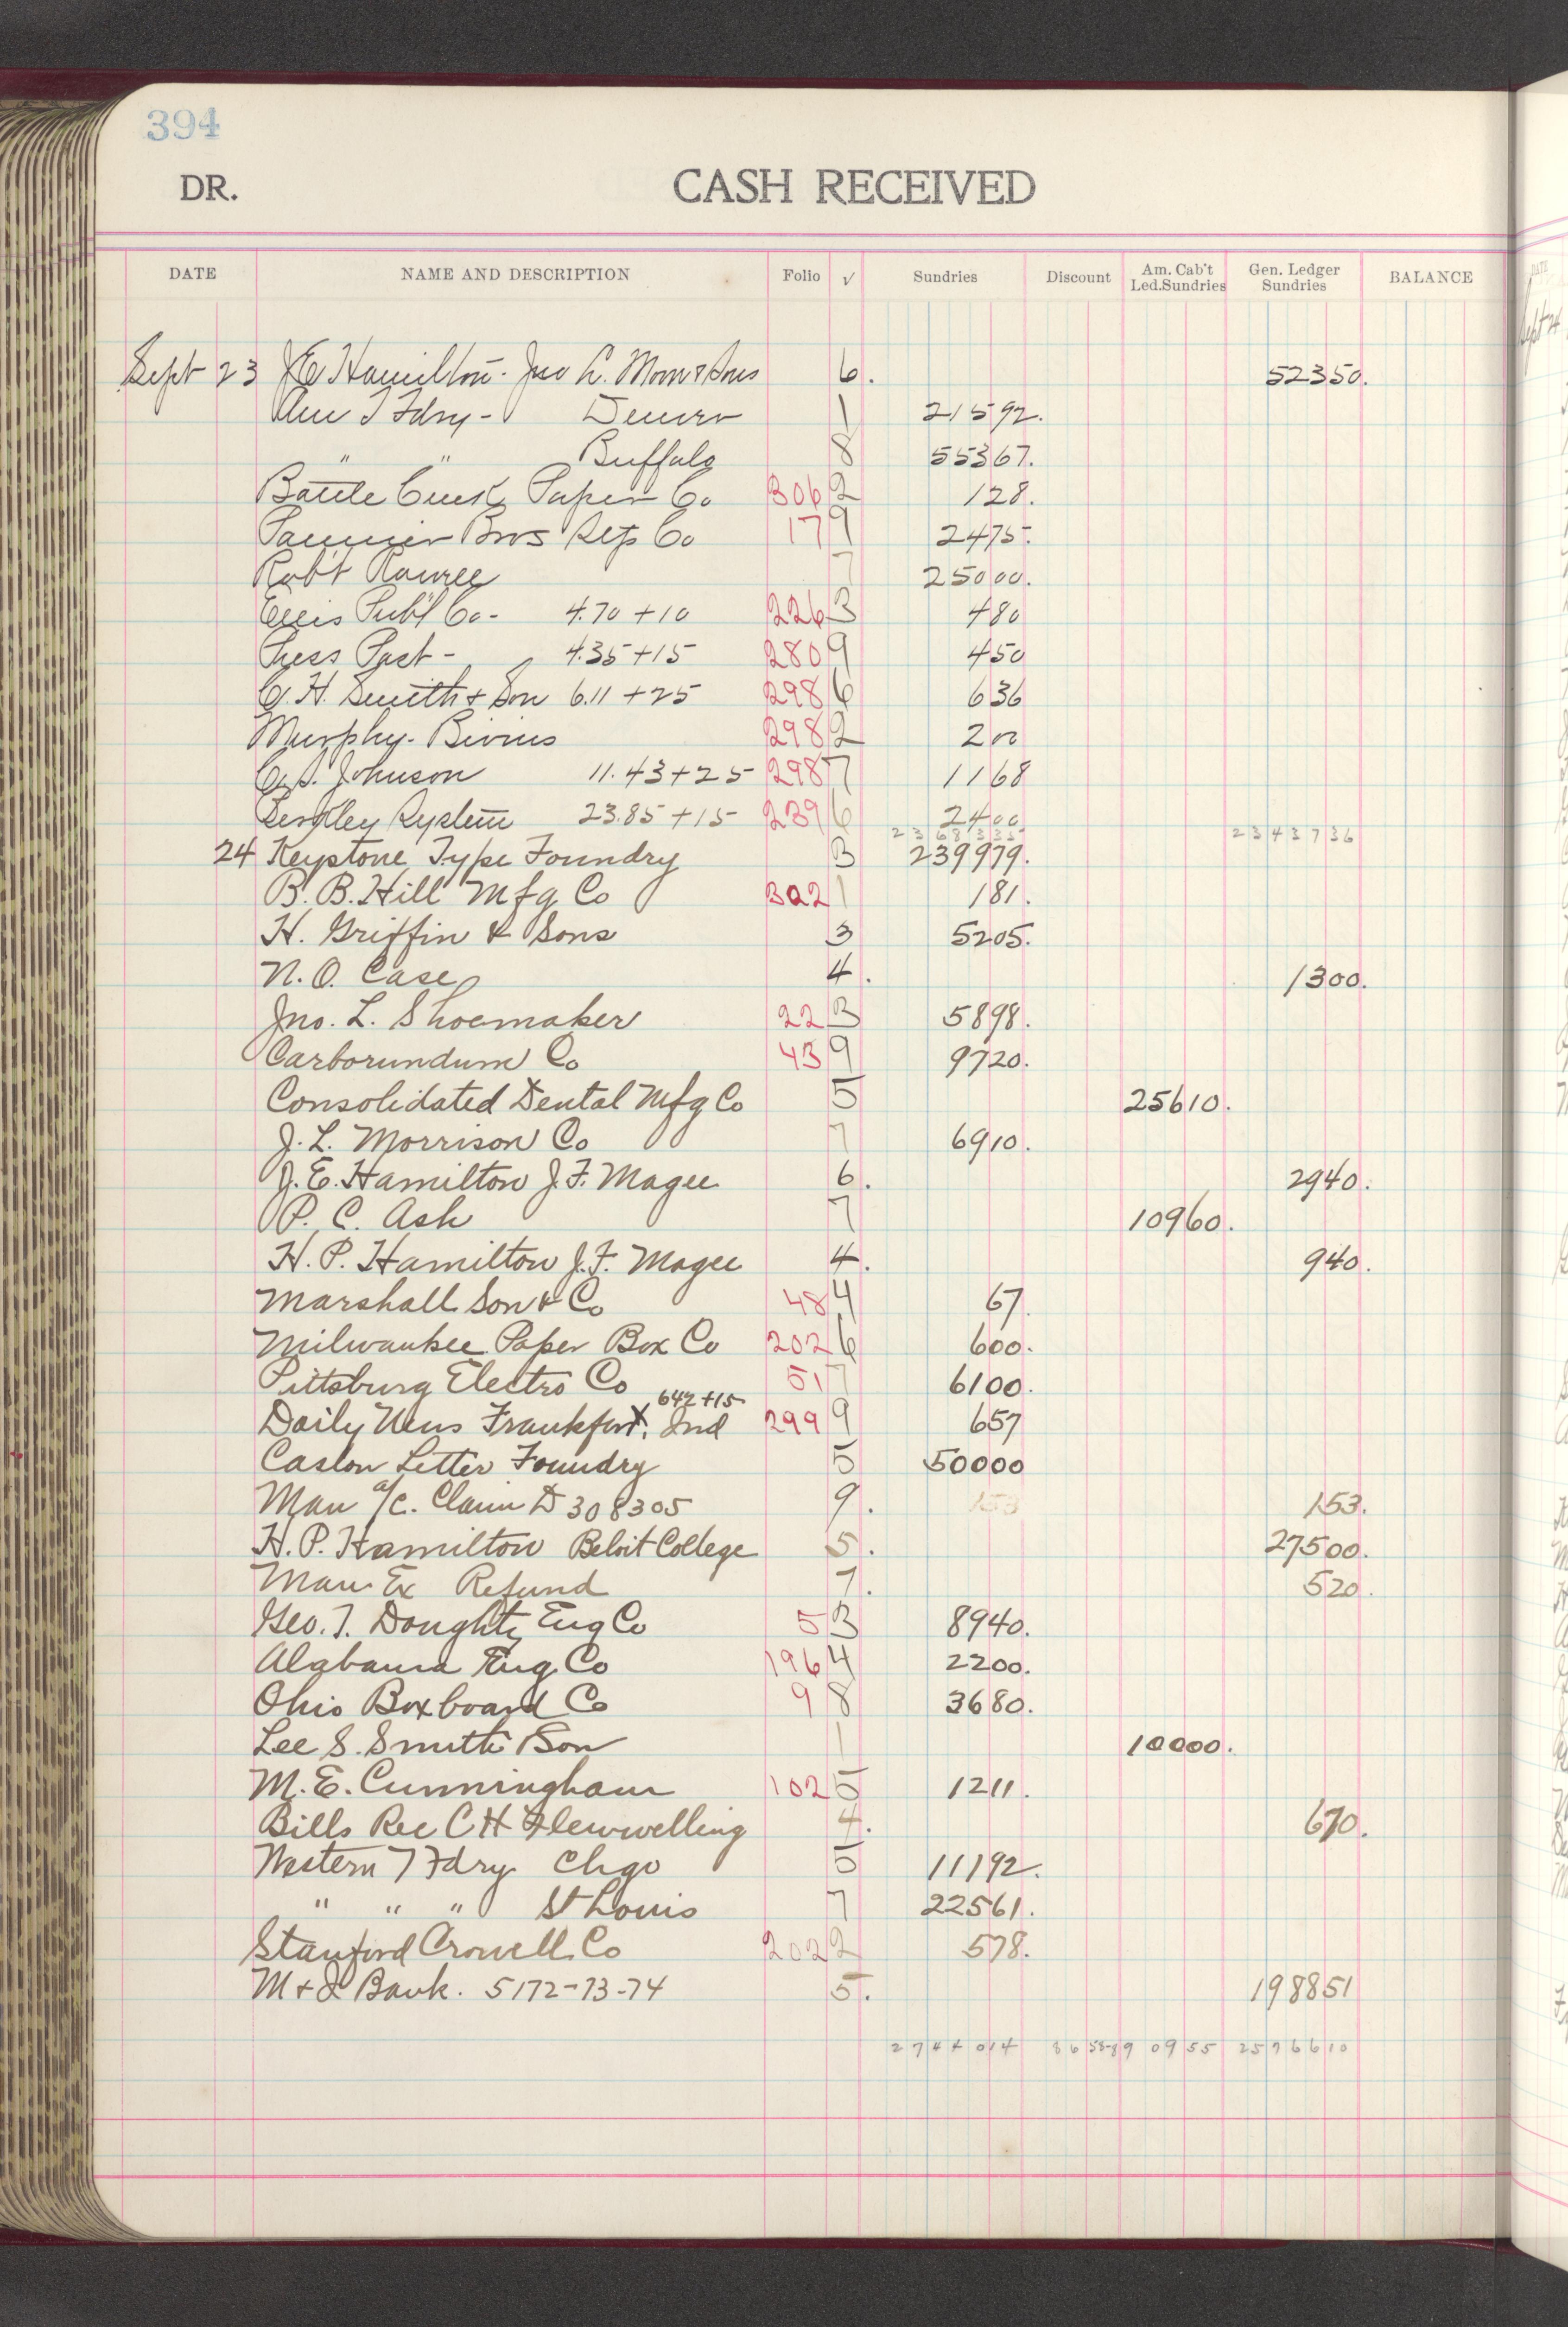 394
DR. CASH RECEIVED
DATE NAME AND DESCRIPTION Folio √ Sundries Discount Am. Cab't Led.Sundries Gen. Ledger Sundries BALANCE
Sept 23 J E Hamilton - Jno L. & Sons 6. 52350.
Am T Fdry - Denver 1 21592.
" " Buffalo 8 55367.
Battle Creek Paper Co 306 2 128.
Bros Co 17 9 2475.
Rob't 7 25000.
Ellis Pub'l Co - 4.70 + 10 226 3 480
Press Post - 4.35 + 15 280 9 450
C. H. Smith & Son 6.11 + 25 298 6 636
Murphy - Bivins 298 2 200
Johnson 11.43 + 25 298 7 1168
System 23.85 + 15 239 6 2400
2368335 2343736
24 Keystone Type Foundry 3 239979.
B. B. Hill Mfg Co 302 1 181.
H. Griffin & Sons 3 5205.
N. O. Case 4. 1300.
Jno. L. Shoemaker 22 3 5898.
Carborundum Co 43 9 9720.
Consolidated Dental Mfg Co 5 25610.
J. L. Morrison Co 7 6910.
J. E. Hamilton J. F. Magee 6. 2940.
P. C. Ash 7 10960.
H. P. Hamilton J. F. Magee 4. 940.
Marshall Son & Co 48 4 67.
Milwaukee Paper Box Co 202 6 600.
Pittsburg Electro Co 51 7 6100.
642 + 15
Daily News Frankfort, Ind 299 9 657
Caslon Letter Foundry 5 50000
Man a/c. Claim D 308305 9. 153 153.
H. P. Hamilton Beloit College 5. 27500.
Man Ex Refund 7. 520.
Geo. T. Doughty Eng Co 5 3 8940.
Alabama Eng. Co 196 4 2200.
Ohio Boxboard Co 9 8 3680.
Lee S. Smith & Son 1 10000.
M. E. Cunningham 102 5 1211.
Bills Rec C H Flewwelling 4. 670.
Western T Fdry Chgo 5 11192.
" " " St Louis 7 22561.
Stanford Crowell Co 202 2 578.
M & I Bank. 5172-73-74 5. 198851
2744014 8658 890955 2576610